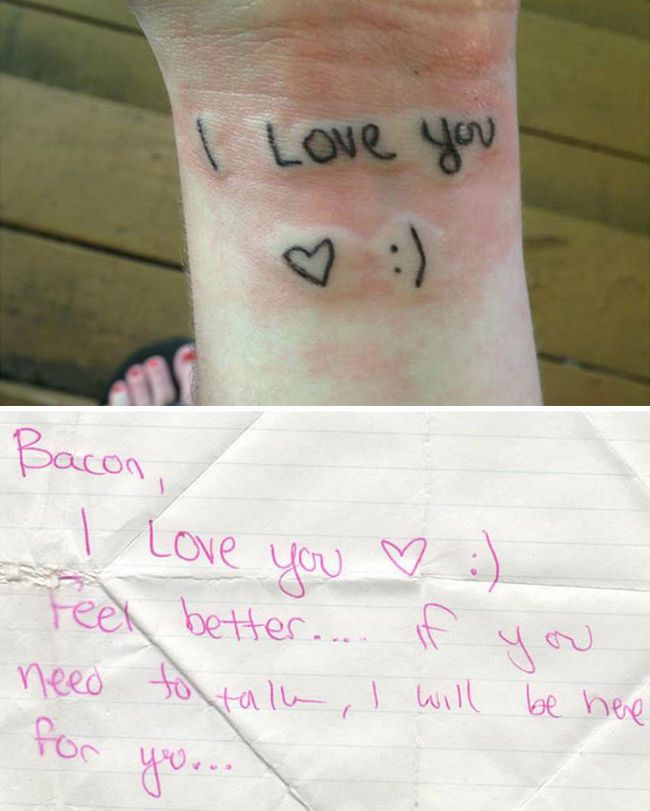 I Love you
♡ :)
Bacon,
I Love you ♡ :)
Feel better.... if you
need to talk, I will be here
for you...